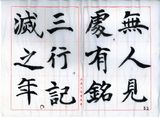 無人見
處有銘
三行記
滅之年